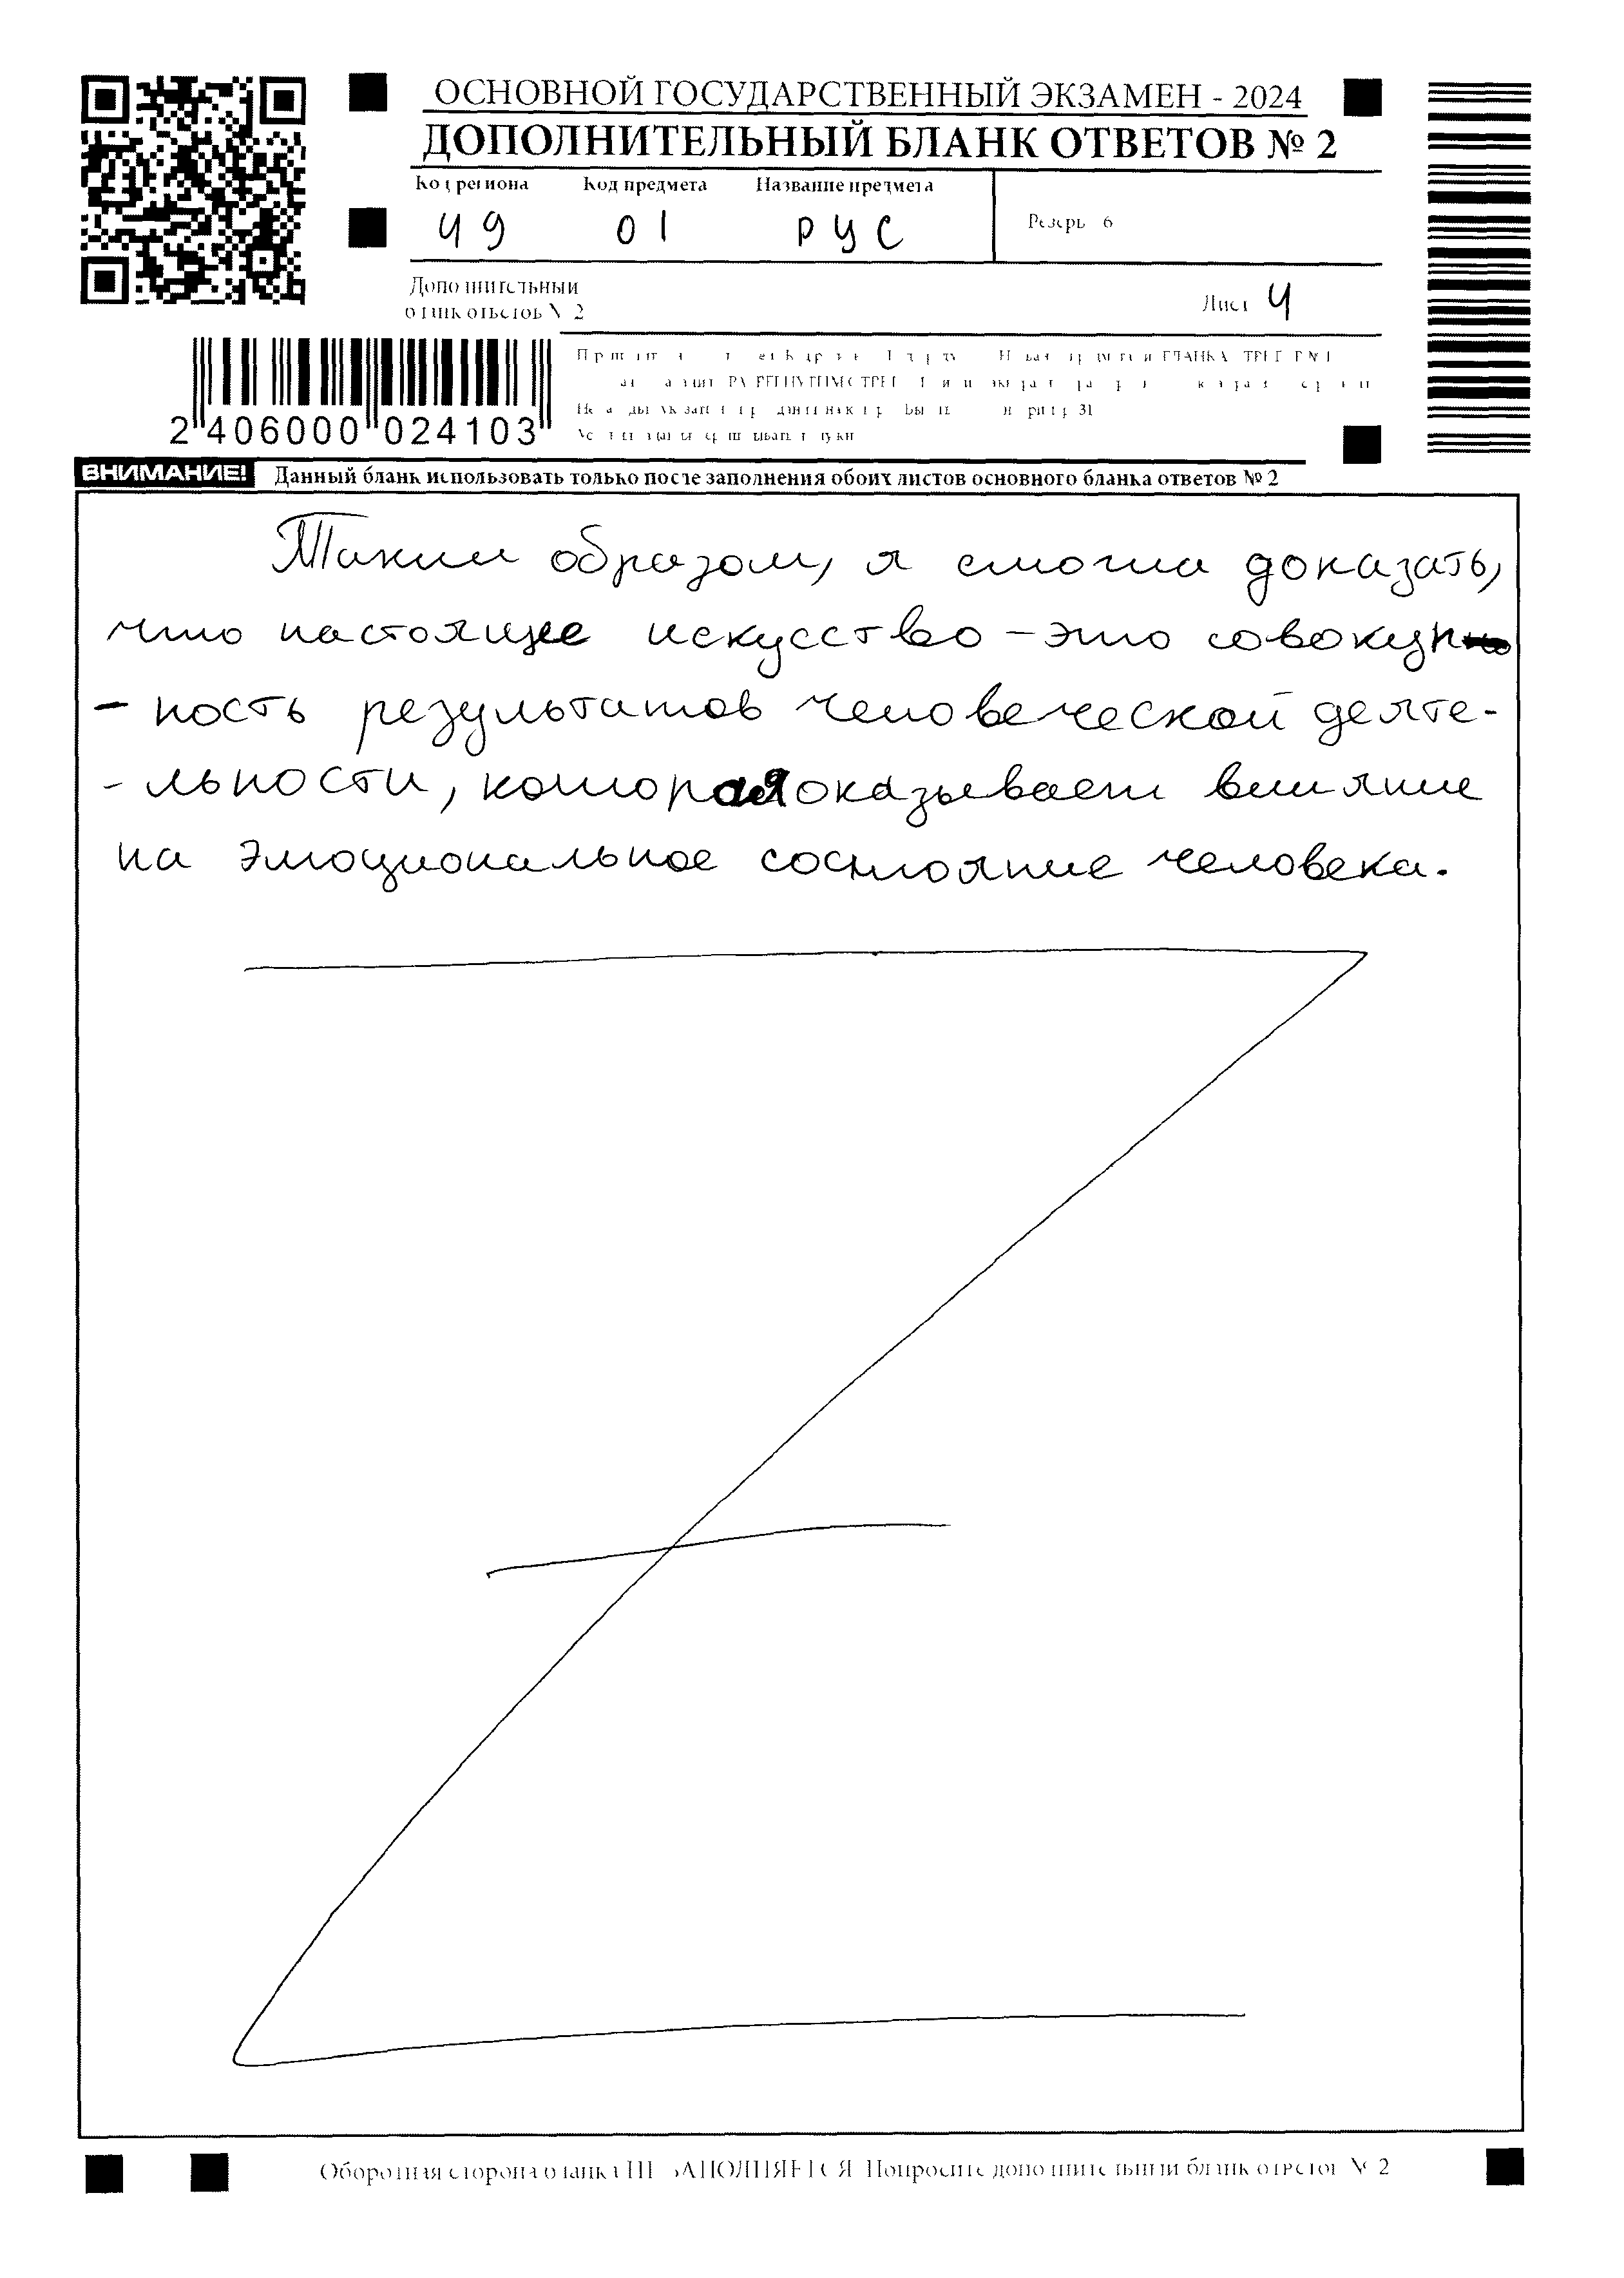 ОСНОВНОЙ ГОСУДАРСТВЕННЫЙ ЭКЗАМЕН - 2024
ДОПОЛНИТЕЛЬНЫЙ БЛАНК ОТВЕТОВ № 2
Код региона Код предмета Название предмета
49 01 РУС
Резерв - 6
Дополнительный
бланк ответов № 2
Лист 4
2 406000 024103
ВНИМАНИЕ! Данный бланк использовать только после заполнения обоих листов основного бланка ответов № 2
Таким образом, я смогла доказать,
что настоящее искусство – это совокуп
- ность результатов человеческой деяте-
- льности, которая оказывает влияние
на эмоциональное состояние человека.
Оборотная сторона бланка НЕ ЗАПОЛНЯЕТСЯ. Попросите дополнительный бланк ответов № 2